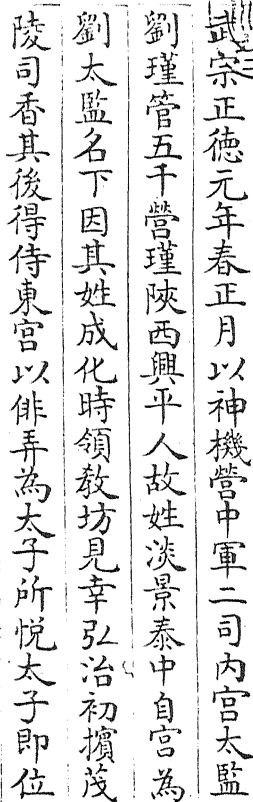 武宗正徳元年春正月以神機營中軍二司内宫太監
劉瑾管五千營瑾陜西興平人故姓淡景泰中自宫為
劉太監名下因其姓成化時領教坊見幸弘治初擯茂
陵司香其後得侍東宫以俳弄為太子所悦太子即位